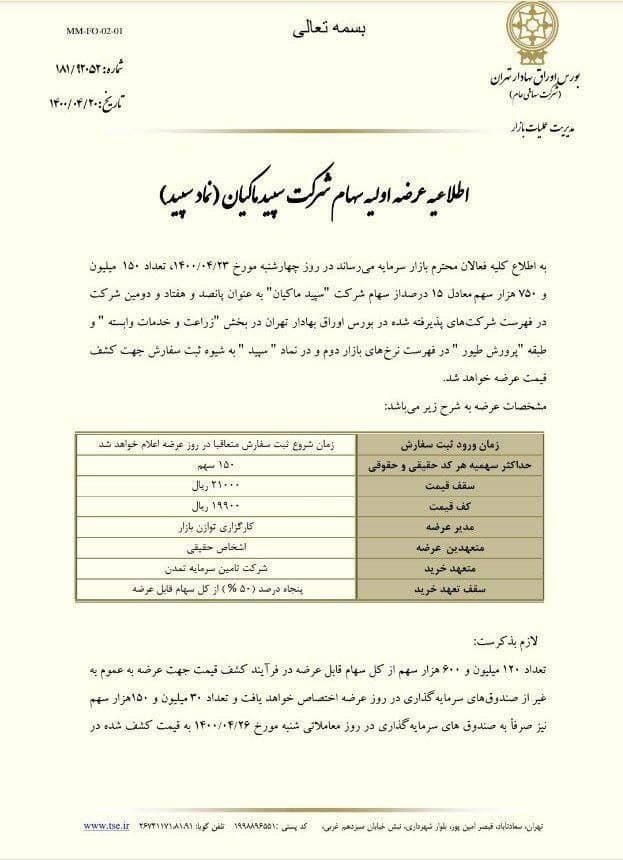 بسمه تعالی
MM-FO-02-01
بورس اوراق بهادار تهران
(شرکت سهامی عام)
مدیریت عملیات بازار
شماره: ۱۸۱/۹۲۰۵۲
تاریخ: ۱۴۰۰/۰۴/۲۰
اطلاعیه عرضه اولیه سهام شرکت سپید ماکیان (نماد سپید)
به اطلاع کلیه فعالان محترم بازار سرمایه می‌رساند در روز چهارشنبه مورخ ۱۴۰۰/۰۴/۲۳، تعداد ۱۵۰ میلیون
و ۷۵۰ هزار سهم معادل ۱۵ درصداز سهام شرکت "سپید ماکیان" به عنوان پانصد و هفتاد و دومین شرکت
در فهرست شرکت‌های پذیرفته شده در بورس اوراق بهادار تهران در بخش "زراعت و خدمات وابسته " و
طبقه "پرورش طیور " در فهرست نرخ‌های بازار دوم و در نماد " سپید " به شیوه ثبت سفارش جهت کشف
قیمت عرضه خواهد شد.
مشخصات عرضه به شرح زیر می‌باشد:
زمان ورود ثبت سفارش زمان شروع ثبت سفارش متعاقبا در روز عرضه اعلام خواهد شد
حداکثر سهمیه هر کد حقیقی و حقوقی ۱۵۰ سهم
سقف قیمت ۲۱۰۰۰ ریال
کف قیمت ۱۹۹۰۰ ریال
مدیر عرضه کارگزاری توازن بازار
متعهدین عرضه اشخاص حقیقی
متعهد خرید شرکت تامین سرمایه تمدن
سقف تعهد خرید پنجاه درصد (۵۰ %) از کل سهام قابل عرضه
لازم بذکرست:
تعداد ۱۲۰ میلیون و ۶۰۰ هزار سهم از کل سهام قابل عرضه در فرآیند کشف قیمت جهت عرضه به عموم به
غیر از صندوق‌های سرمایه‌گذاری در روز عرضه اختصاص خواهد یافت و تعداد ۳۰ میلیون و ۱۵۰هزار سهم
نیز صرفاً به صندوق های سرمایه‌گذاری در روز معاملاتی شنبه مورخ ۱۴۰۰/۰۴/۲۶ به قیمت کشف شده در
تهران، سعادت‌آباد، قیصر امین پور، بلوار شهرداری، نبش خیابان سیزدهم غربی، کد پستی :۱۹۹۸۸۹۶۵۵۱ تلفن گویا: ۲۶۷۴۱۱۷۱،۸۱،۹۱ www.tse.ir